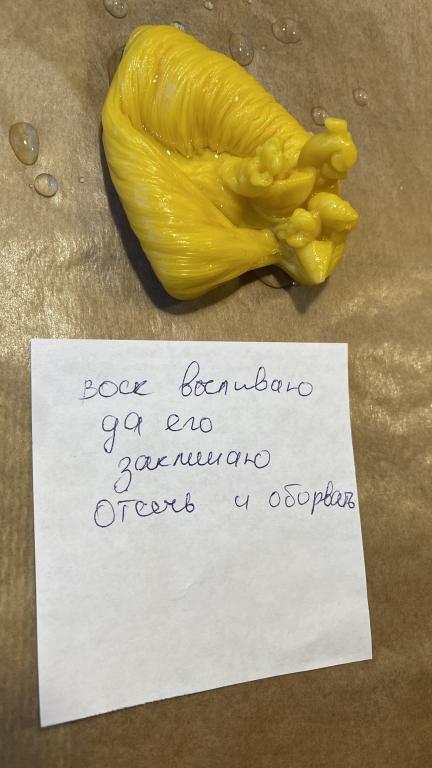 воск выливаю
да его
заклинаю
Отсечь и оборвать